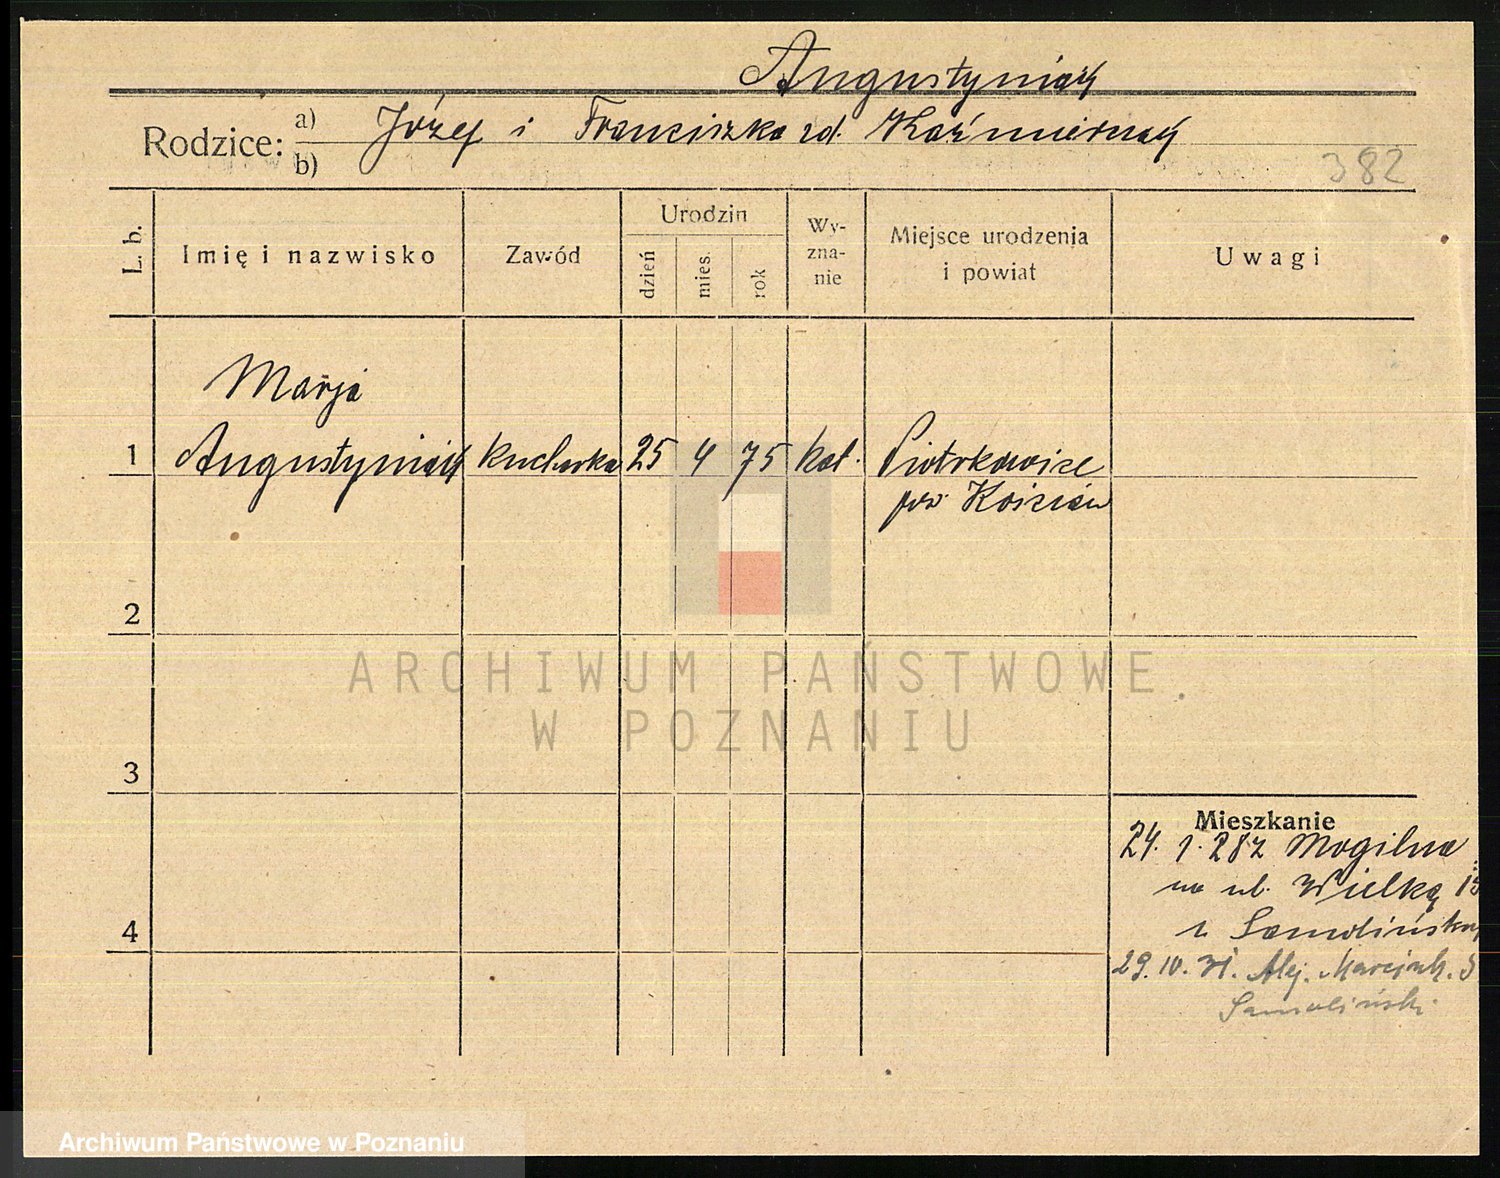 Augustyniak
Rodzice: a) Józef i Franciszka zd. Kaźmierczak
b)
382
L. b.
Imię i nazwisko
Zawód
Urodzin
dzień
mies.
rok
Wy-
zna-
nie
Miejsce urodzenia
i powiat
Uwagi
Marja
1 Augustyniak kucharka 25 4 75 kat. Piotrkowice
pow. Kościan
2
3
4
Mieszkanie
24. 1. 282 Mogilna
na ul. Wielką 15
Samolińska
29. IV. 31. Alej. Marcink.
Samoliński
ARCHIWUM PAŃSTWOWE
W POZNANIU
Archiwum Państwowe w Poznaniu